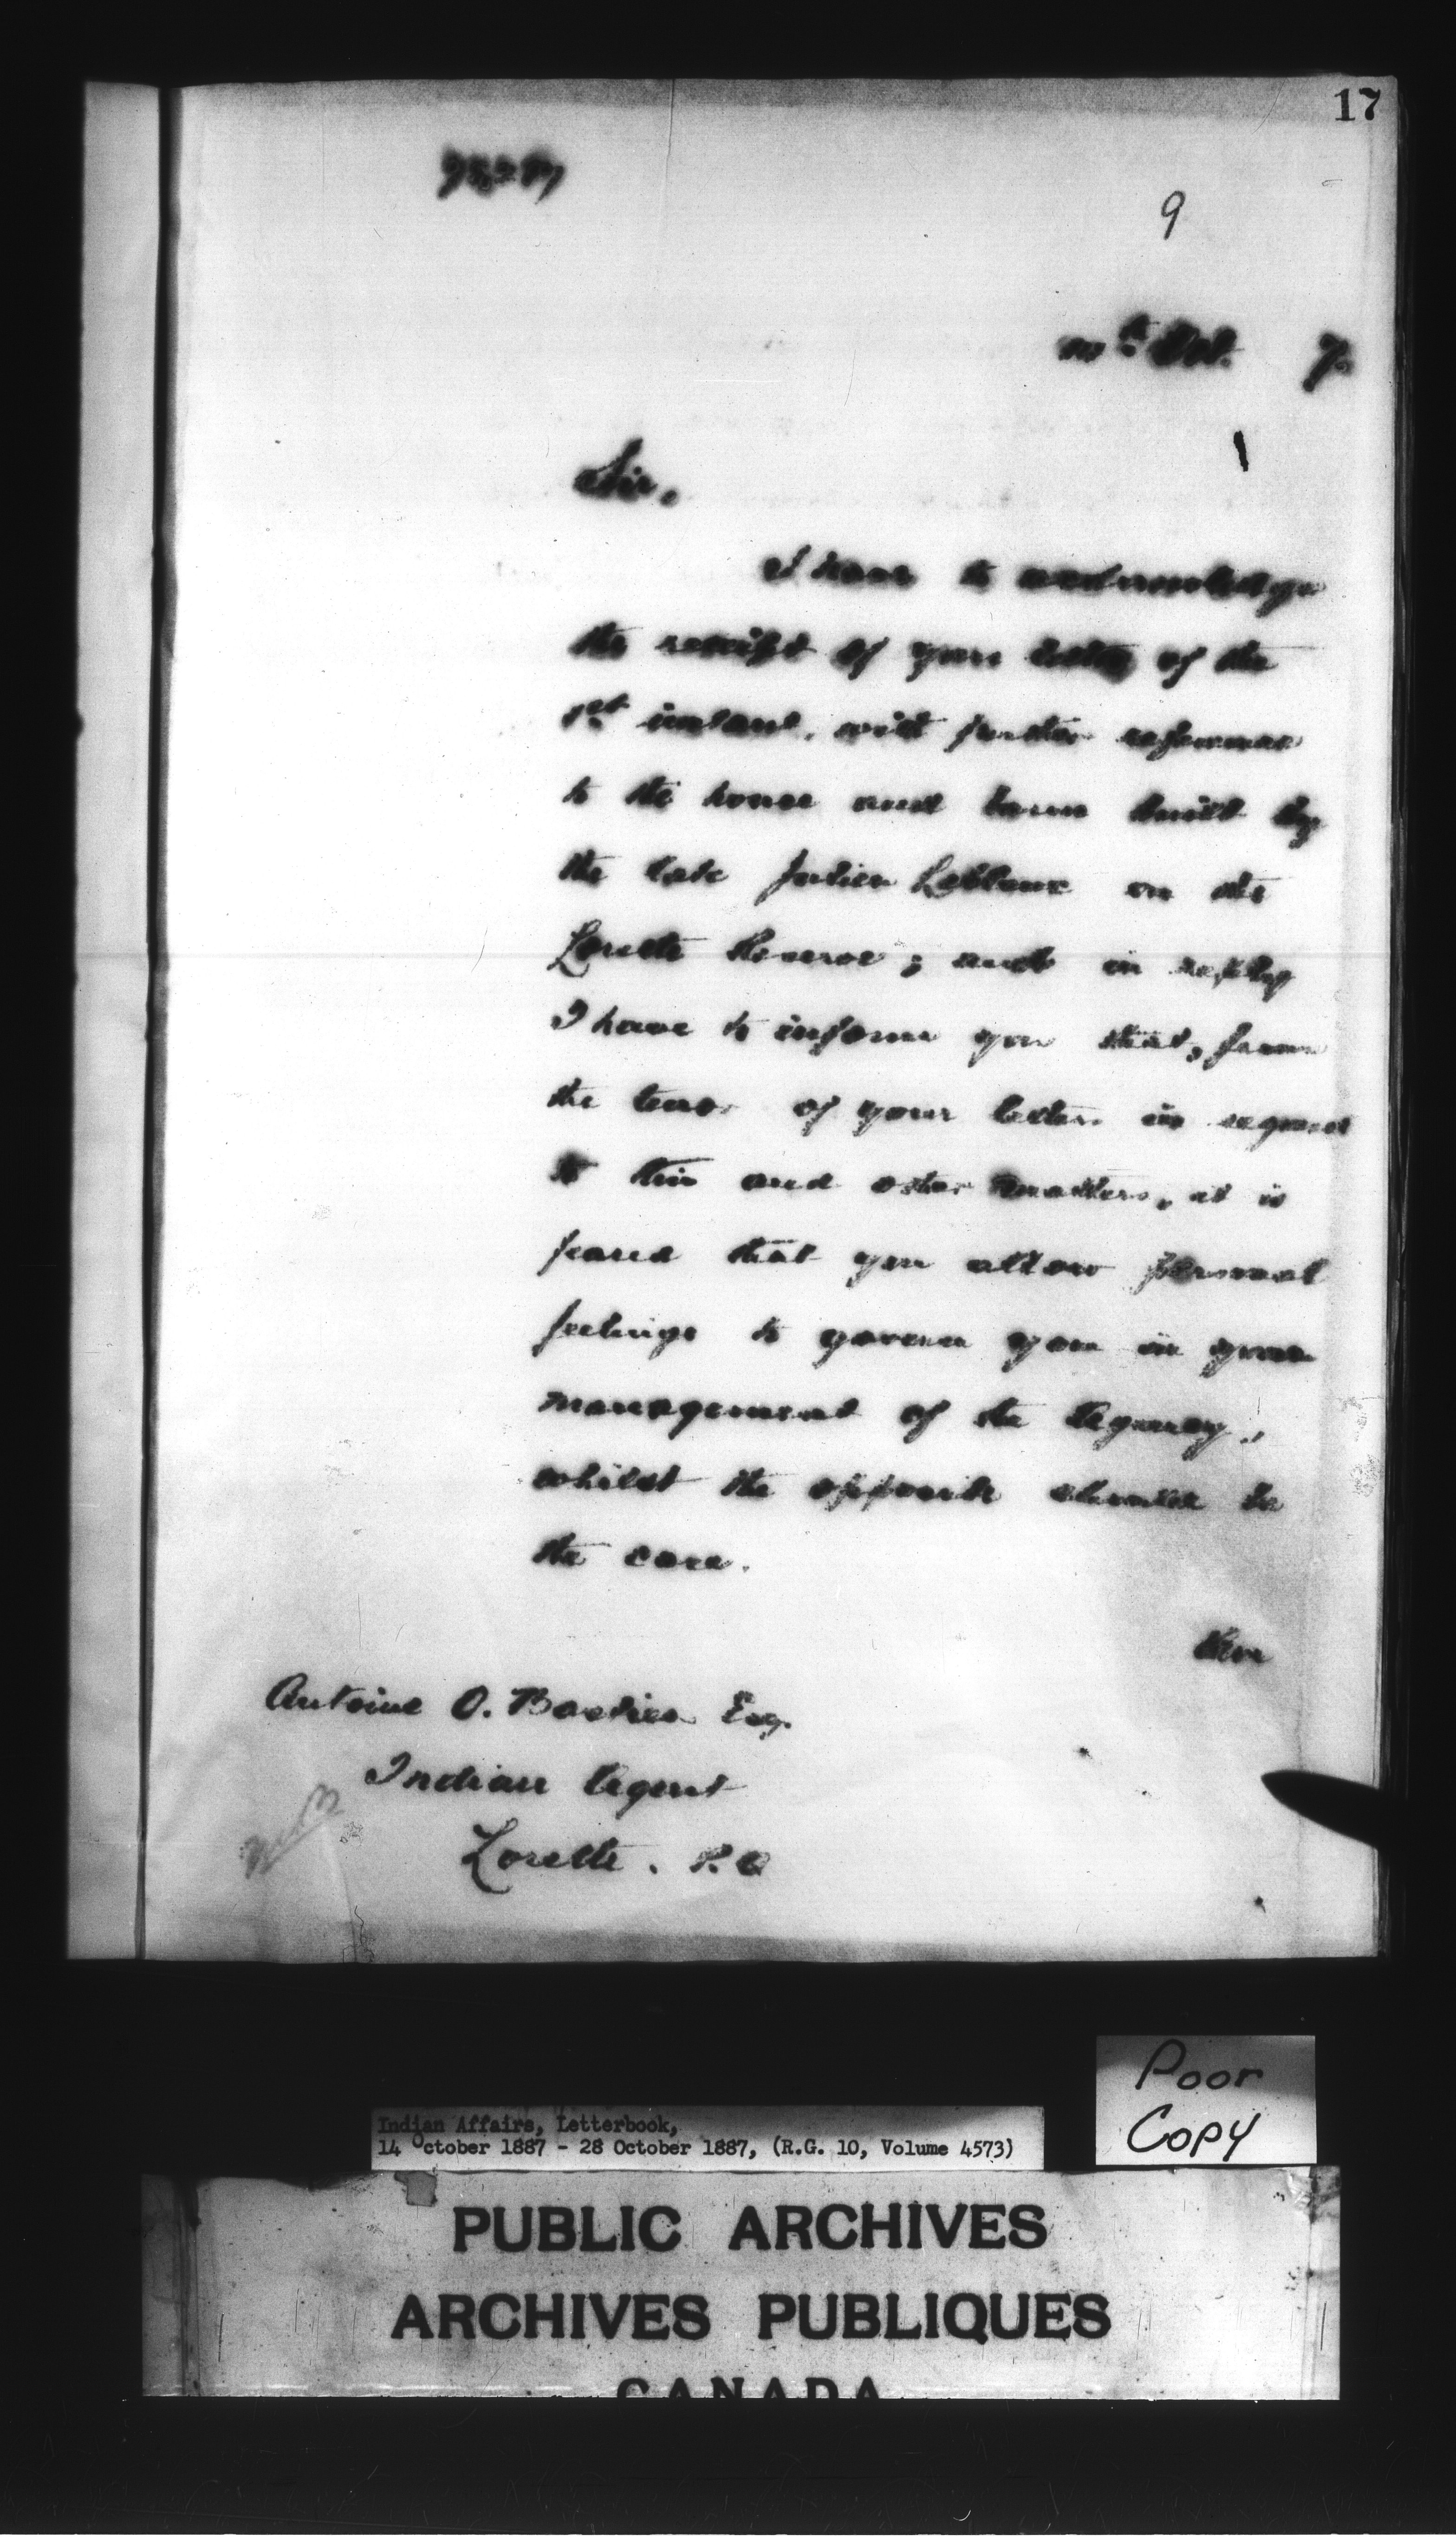 17
9
th Oct. 7
Sir,
I have to acknowledge
the receipt of your letter of the
1st instant, with further reference
to the house and barn built by
the late Julien Leblanc on the
Lorette Reserve; and in reply
I have to inform you that, from
the tenor of your letters in regard
to this and other matters, it is
feared that you allow personal
feelings to govern you in your
management of the Agency,
whilst the opposite should be
the case.
Antoine O. Bastien Esq.
Indian Agent
Lorette. P.Q
Poor
Copy
Indian Affairs, Letterbook,
14 October 1887 - 28 October 1887, (R.G. 10, Volume 4573)
PUBLIC ARCHIVES
ARCHIVES PUBLIQUES
CANADA